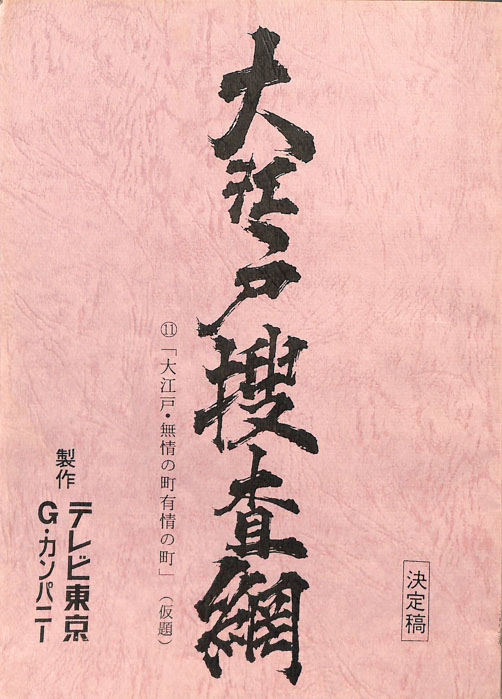 決定稿
大江戸捜査網
⑪「大江戸・無情の町有情の町」（仮題）
製作
テレビ東京
G・カンパニー